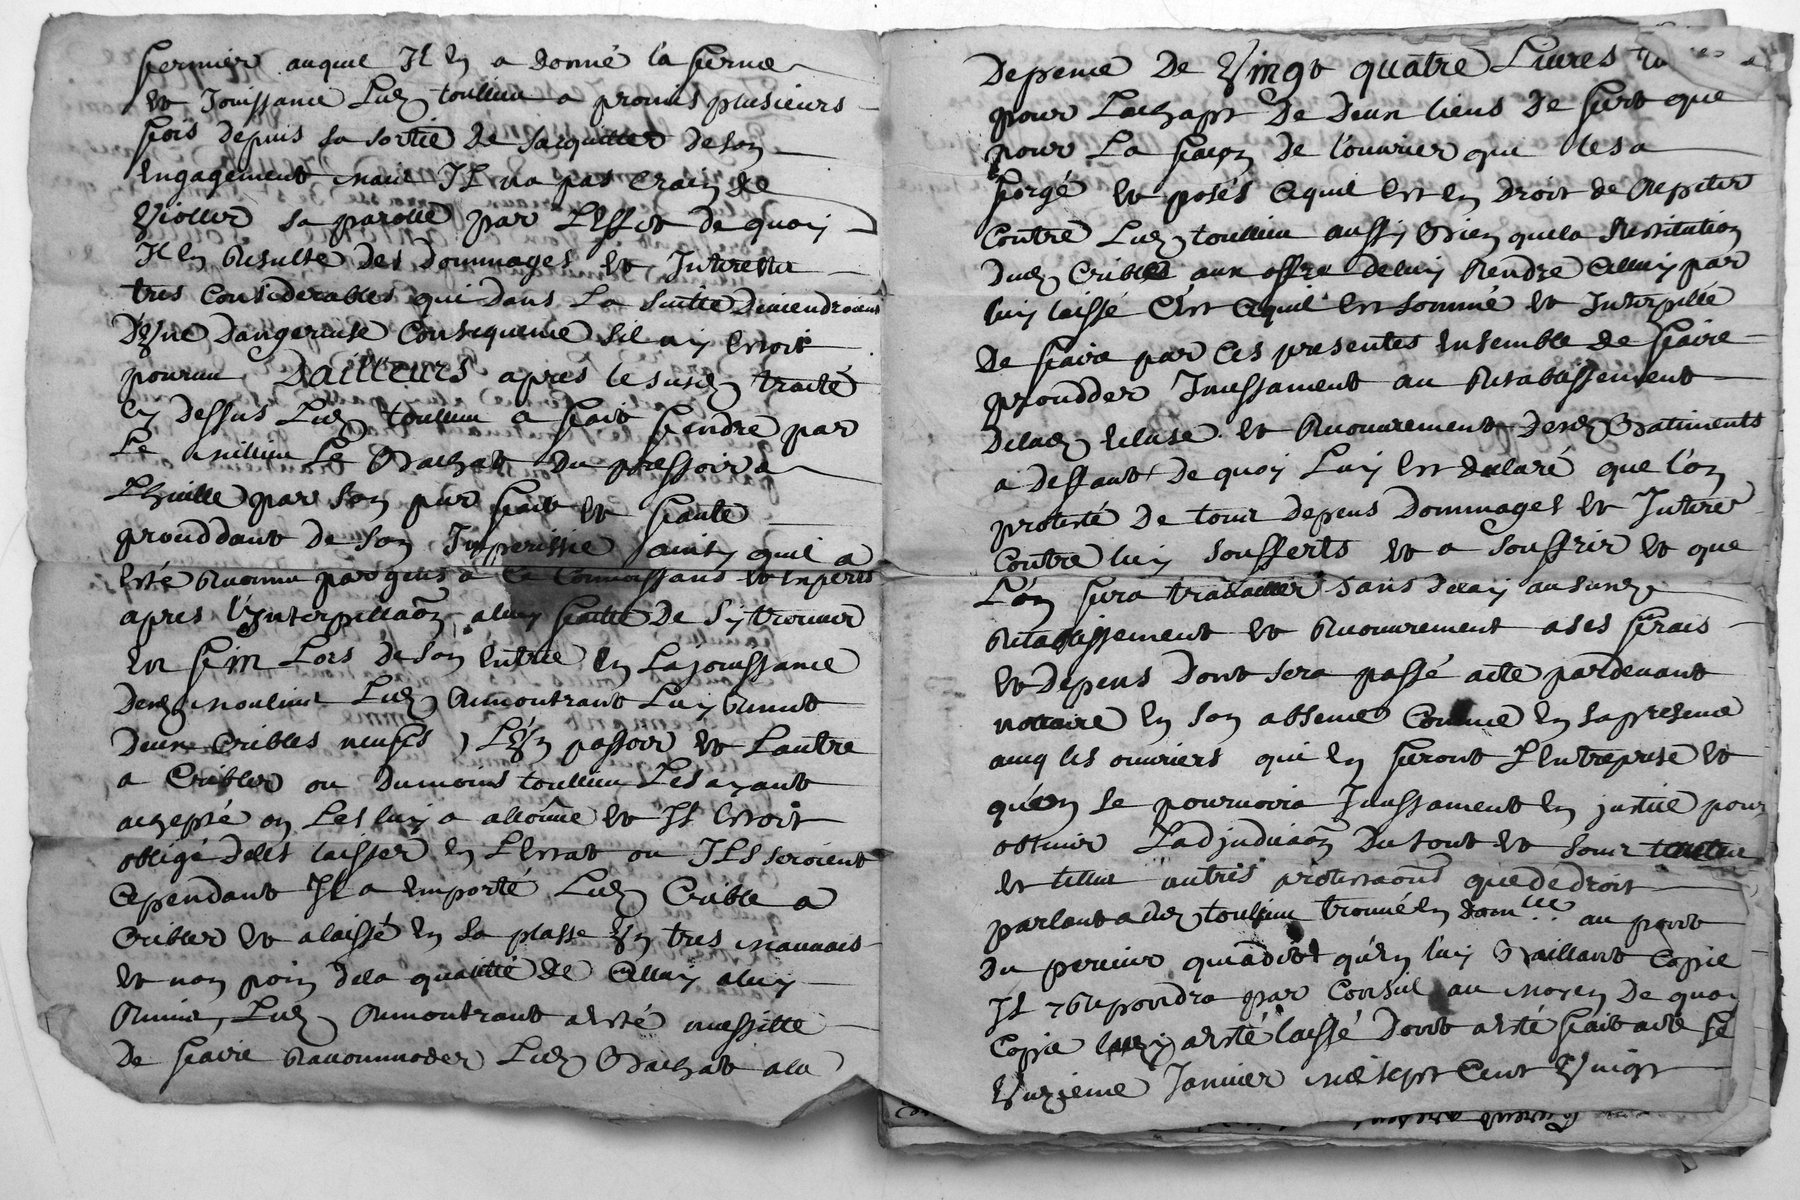 fermier auquel Il en a donné la ferme
et Jouissance Lud toullieu a promis plusieurs
fois depuis sa sortie de sacquitter deson
Engagement mais Il na pas crain de
violler sa parolle par Leffet de quoy
Il en Resulte des dommages et Interetz
tres Considerables qui dans La suitte deviendroient
d'une dangereuse Consequence sil ny Estoit
pourveu Dailleurs aprés le susd traité
cy dessus Lud toullieu a fait fendre par
Le milieu Le Bachat du pressoir a
Lhuille par son pur fait et faute
proceddant de son Imperissie ainsy quil a
Esté Reconnu par gens a Ce Connoissans et Experts
apres L'Interpellaōn aluy faitte de sy trouver
En fin Lors deson Entrée En La jouissance
desd moulins Lud Remontrant Luy Remit
deux Cribles neufs, L'un passoir et Lautre
a Cribler ou dumoins toullieu Les ayant
accepté on Les luy a alloüné et Il Estoit
obligé deles laisser En LEstat ou ILs seroient
Cependant Il a Emporté Lud Crible a
Cribler et alaissé En sa plasse un tres mauvais
et non poin dela qualité de Celluy aluy
Remis, Lud Remontrant aesté necessitté
De faire Raccommoder Led Bachat ala
Depence De vingt quatre Livres
pour Lachapt De deux liens de fert que
pour La façon de l'ouvrier qui lesa
forgé et posés Cequil est En droit de Repeter
Contre Lud toullieu aussy Bien quela Restitution
dud Crible aux offre deluy Rendre Celluy par
luy laissé C'est Cequil est sommé et Interpellé
De faire par Ces presentes Ensemble de faire
procedder Incessament au Retablissement
delad Ecluse et Recouvrement desd Batiments
a deffaut De quoy Luy est declaré que l'on
protesté De tous depens Dommages et Interé
Contre luy soufferts et a souffrir et que
L'on fera travailler sans delay aususd
Retablissement et Recouvrement ases frais
et depens Dont sera passé acte pardevant
nottaire En son absence Comme En sapresence
avec les ouvriers qui En feront L'Entreprise et
qu'on se pourvoira Incessament En justice pour
obtenir L'adjudicaōn du tout et sous
et telles autres protestaōns quededroit
parlant a dud toullieu trouvé En dom au port
du perieur quiadit qu'En luy Baillant Copie
Il Repondra par Conseil au moyen De quoy
Copie luy aesté laissé dont aesté fait acte Le
unzieme Janvier mil sept Cent vingt